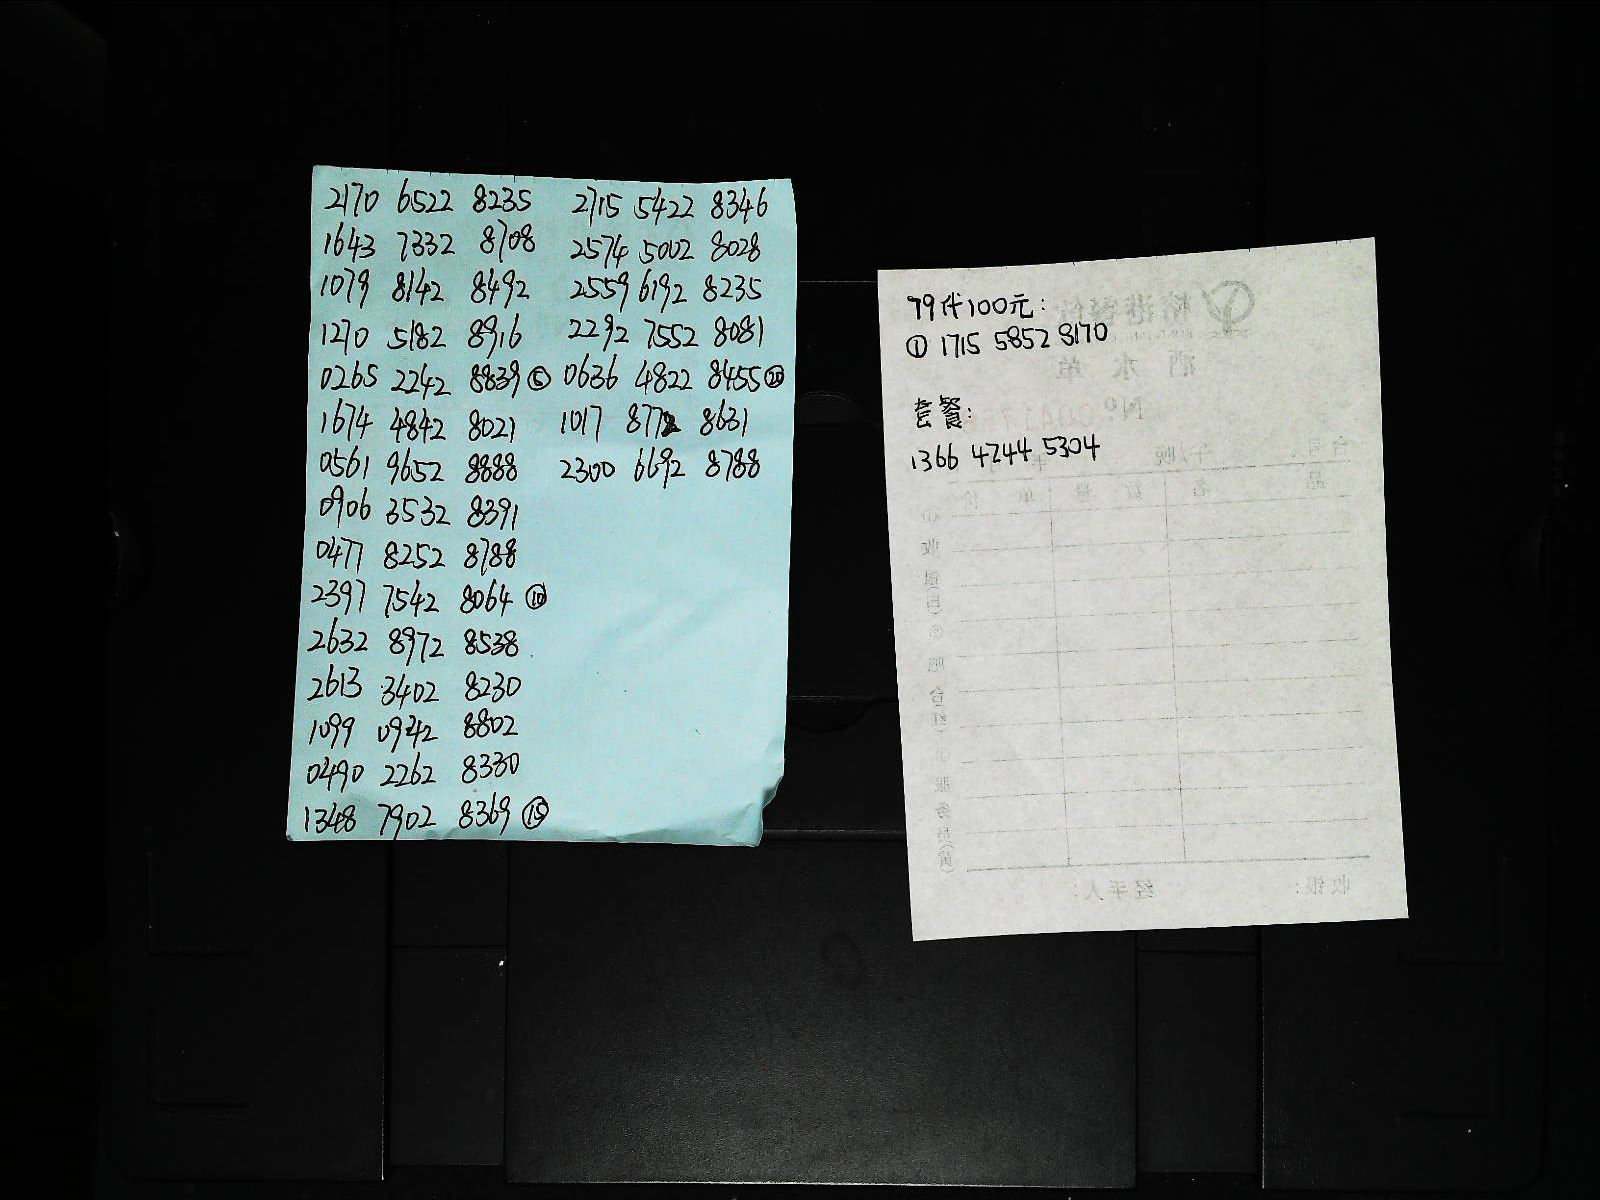 2170 6522 8235
1643 7332 8708
1079 8142 8492
1270 5182 8916
0265 2242 8839 ⑤
1674 4842 8021
0561 9652 8888
0906 3532 8391
0477 8252 8788
2397 7542 8064 ⑩
2632 8972 8538
2613 3402 8230
1099 0942 8802
0490 2262 8330
1348 7902 8369 ⑮
2715 5422 8346
2574 5002 8028
2559 6192 8235
2292 7552 8081
0636 4822 8455 ⑳
1017 8772 8631
2300 6692 8788
79代100元:
① 1715 5852 8170
套餐:
1366 4244 5304
酒水单
No
品名 数量 单价
收银:
经手人: